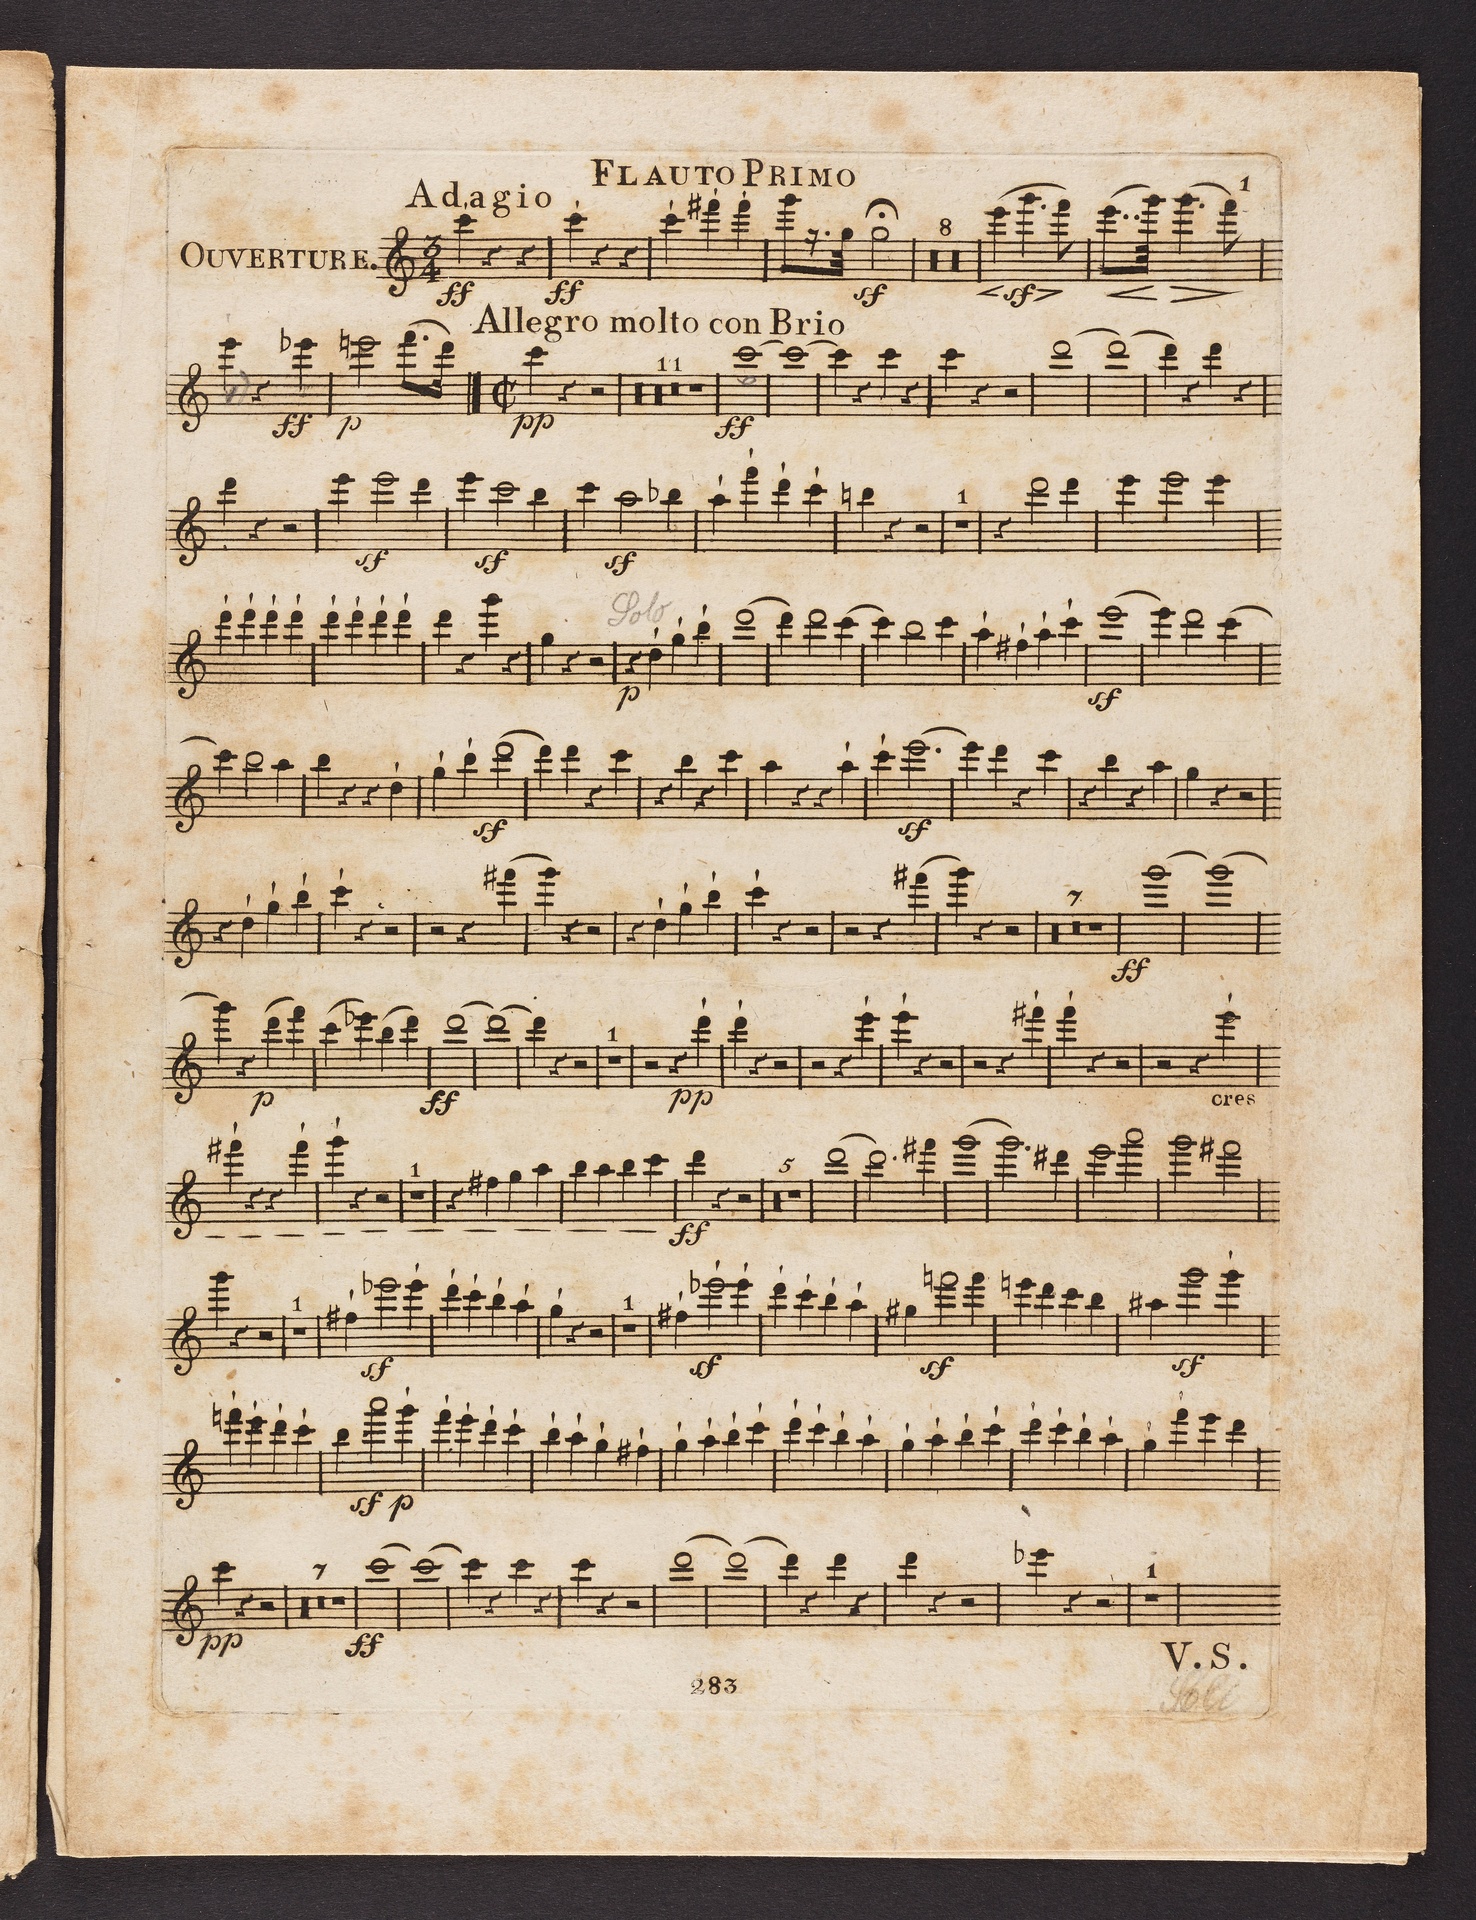 FLAUTO PRIMO
1
Adagio
OUVERTURE.
3
4
8
ff ff sf < sf > < >
Allegro molto con Brio
11
ff p pp ff
1
sf sf sf
Solo
p sf
sf sf
7
ff
1
p ff pp cres
1 5
ff
1 1
sf sf sf sf
sf p
7 1
pp ff
V.S.
283